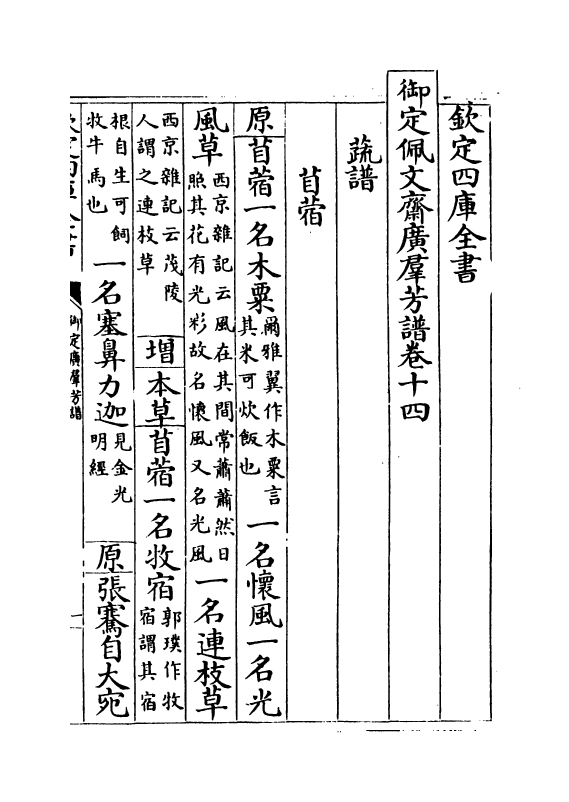 欽定四庫全書
御定佩文齋廣羣芳譜卷十四
蔬譜
苜蓿
原苜蓿一名木粟爾雅翼作木粟言其米可炊飯也一名懷風一名光
風草西京雜記云風在其間常蕭蕭然日照其花有光彩故名懷風又名光風一名連枝草
西京雜記云茂陵人謂之連枝草增本草苜蓿一名牧宿郭璞作牧宿謂其宿
根自生可飼牧牛馬也一名塞鼻力迦見金光明經原張騫自大宛
御定廣羣芳譜
一